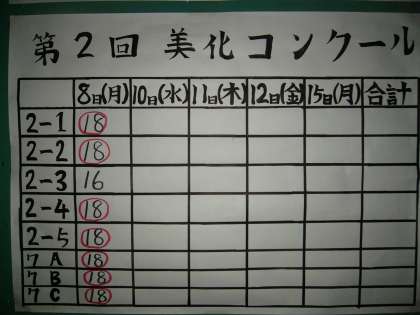 第2回 美化コンクール
8日(月) 10日(水) 11日(木) 12日(金) 15日(月) 合計
2-1 18
2-2 18
2-3 16
2-4 18
2-5 18
7 A 18
7 B 18
7 C 18